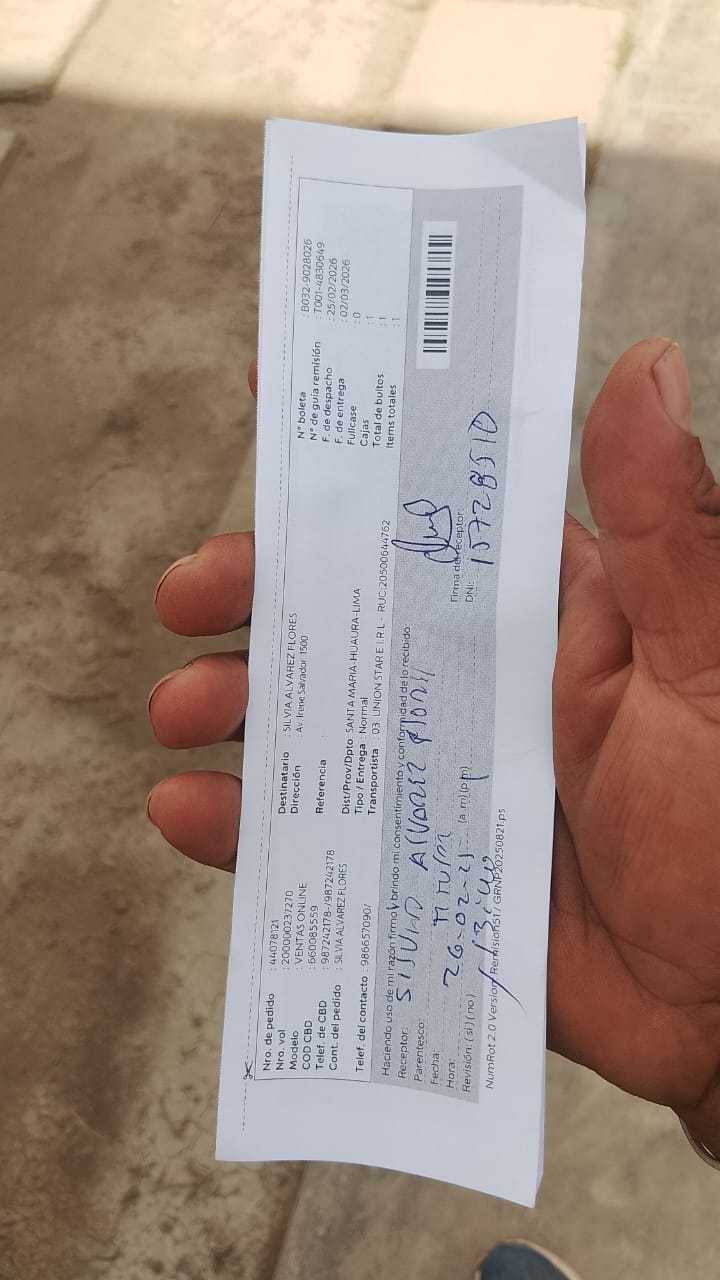 Nro. de pedido : 44078121
Nro. vol : 200000237270
Modelo : VENTAS ONLINE
COD CBD : 660085559
Telef. de CBD : 987242178-/987242178
Cont. del pedido : SILVIA ALVAREZ FLORES
Telef. del contacto : 986657090/
Destinatario : SILVIA ALVAREZ FLORES
Dirección : Av. Irene Salvador 1500
Referencia :
Dist/Prov/Dpto : SANTA MARIA-HUAURA-LIMA
Tipo / Entrega : Normal
Transportista : 03 UNION STAR E.I.R.L - RUC:20500644762
N° boleta : B032-9028026
N° de guía remisión : T001-4830649
F. de despacho : 25/02/2026
F. de entrega : 02/03/2026
Fullcase : 0
Cajas : 1
Total de bultos : 1
Items totales : 1
Haciendo uso de mi razón firmo y brindo mi consentimiento y conformidad de lo recibido
Receptor: ALVAREZ
Parentesco:
Fecha:
Hora: (a.m)(p.m)
Revisión: (si) (no)
Firma del receptor
DNI: 15728510
NumRot 2.0 Version Remision51/ GRNP20250821.ps